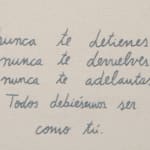 nunca te detienes
nunca te devuelves
nunca te adelantas
Todos debiésemos ser
como tú.